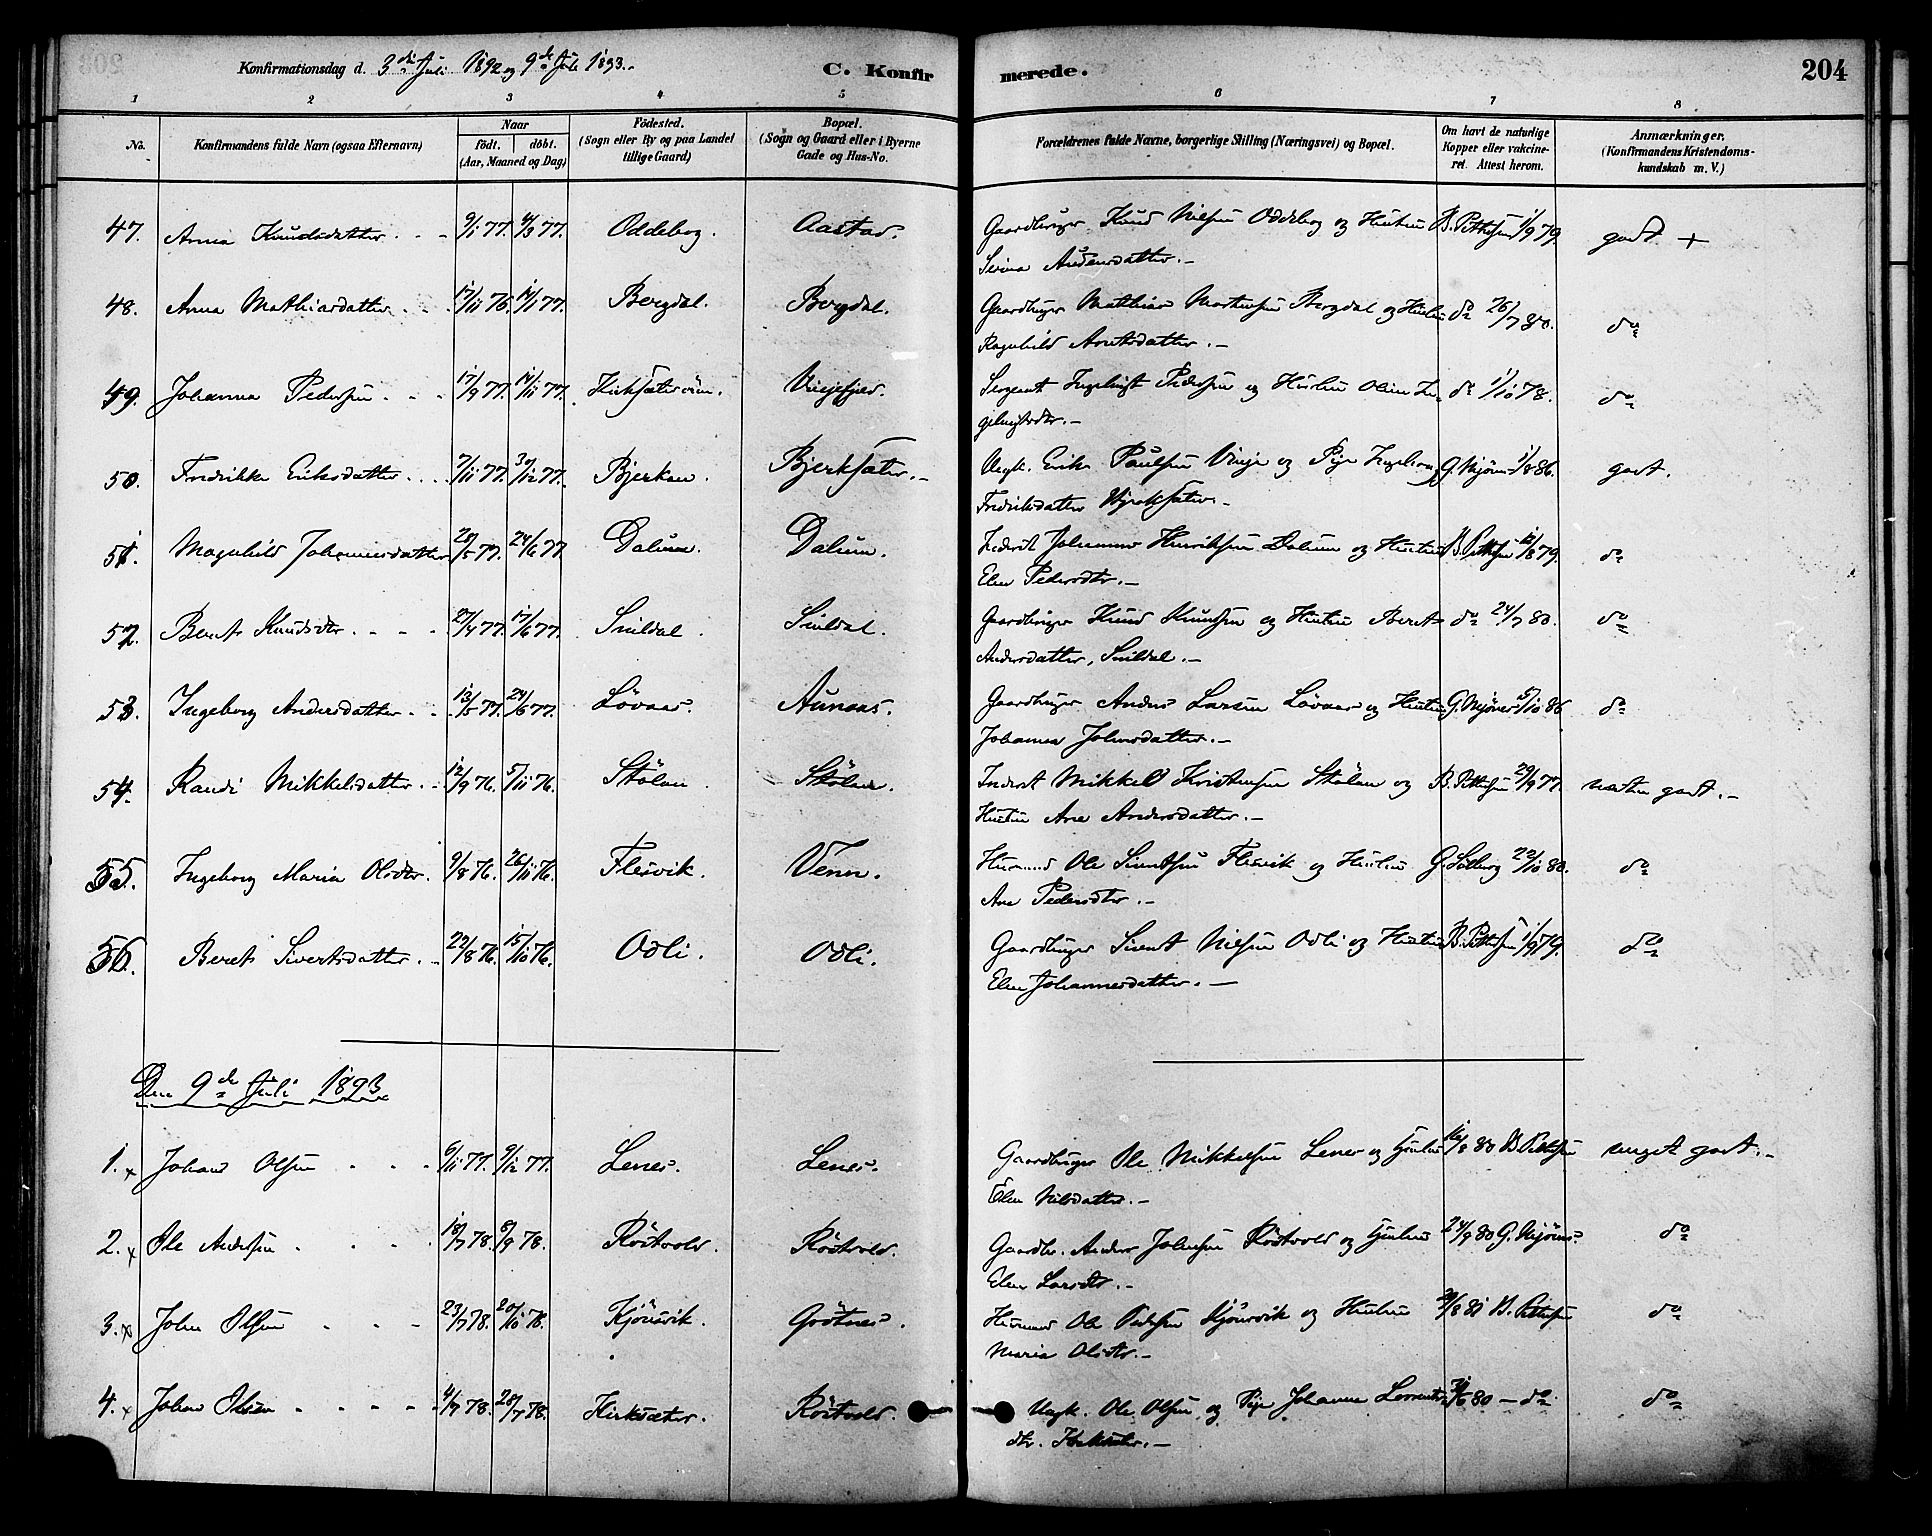 Konfirmationsdag d. 3die Juli 1892 og 9de Juli 1893.
C. Konfirmerede.
204
1 2 3 4 5 6 7 8
No.
Konfirmandens fulde Navn (ogsaa Efternavn)
Naar
födt. döbt.
(Aar, Maaned og Dag)
Födested.
(Sogn eller By og paa Landet
tillige Gaard)
Bopæl.
(Sogn og Gaard eller i Byerne
Gade og Hus-No.
Forældrenes fulde Navne, borgerlige Stilling (Næringsvei) og Bopæl.
Om havt de naturlige
Kopper eller vakcine-
ret. Attest herom.
Anmærkninger.
(Konfirmandens Kristendoms-
kundskab m. V.)
47. Anna Knudsdatter 9/1 77. 4/3 77. Oddebog. Aastad. Gaardbruger Knud Nilsen Oddebog og Hustru B. Pettersen 1/9 79. godt +
Serina Andersdatter.
48. Anna Mathiasdatter 17/11 76. 14/1 77. Bergdal. Bergdal. Gaardbruger Mathias Bergdal og Hustru do 26/7 80. do
Ragnhild Arntsdatter.
49. Johanna Pedersen 17/9 77. 14/11 77. Vinjefjord. Sergeant Pedersen og Hustru Oline In- do 1/10 78. do
50. Fredrikke Eriksdatter 7/11 77. 30/12 77. Bjerkan. Bjerksæter. Ungk. Erik Paulsen Vinje og Pige 1/8 86. godt.
Fredriksdatter
51. Magnhild Johannesdatter 28/5 77. 24/6 77. Dalum. Dalum. Inderst Johannes Henriksen Dalum og Hustru B. Pettersen 12/8 79. do
Elen Pedersdtr.
52. Beret Knudsdtr 27/4 77. 17/6 77. Snildal. Snildal. Gaardbruger Knud Knudsen og Hustru Beret do 24/7 80. do
Andersdatter, Snildal.
53. Ingeborg Andersdatter 13/5 77. 24/6 77. Lövaas. Aunaas. Gaardbruger Anders Larsen Lövaas og Hustru 5/10 86. do
Johanna Johnsdatter.
54. Randi Mikkelsdatter 12/9 76. 5/11 76. Stölan. Stölan. Inderst Mikkel Kristensen Stölan og B. Pettersen 29/9 77. næsten godt.
Hustru Ane Andersdatter.
55. Ingeborg Maria Olsdtr. 9/8 76. 26/11 76. Flesvik. Venn. Husmand Ole Sivertsen Flesvik og Hustru G. Solberg 22/10 80. do
Ane Pedersdtr.
56. Beret Sivertsdatter 22/8 76. 15/10 76. Odli. Odli. Gaardbruger Sivert Nilsen Odli og Hustru B. Pettersen 1/9 79. do
Elen Johannesdatter.
Den 9de Juli 1893
1. x Johan Olsen 6/11 77. 9/12 77. Lenes. Lenes. Gaardbruger Ole Mikkelsen Lenes og Hustru 16/8 80 B. Pettersen meget godt.
Elen Nilsdatter.
2. x Ole Andersen 18/7 78. 8/9 78. Röstvold. Röstvold. Gaardbr. Anders Johnsen Röstvold og Hustru 24/9 80 do
Elen Larsdtr.
3. x John Olsen 23/7 78. 20/10 78. Kjönsvik. Grötnes. Husmand Ole Pedersen Kjönsvik og Hustru B. Pettersen do
Maria Olsdtr.
4. x Johan Olsen 4/7 78. 28/7 78. Kirksæter. Röstvold. Ungk. Ole Olsen og Pige Johanna 80 – do do